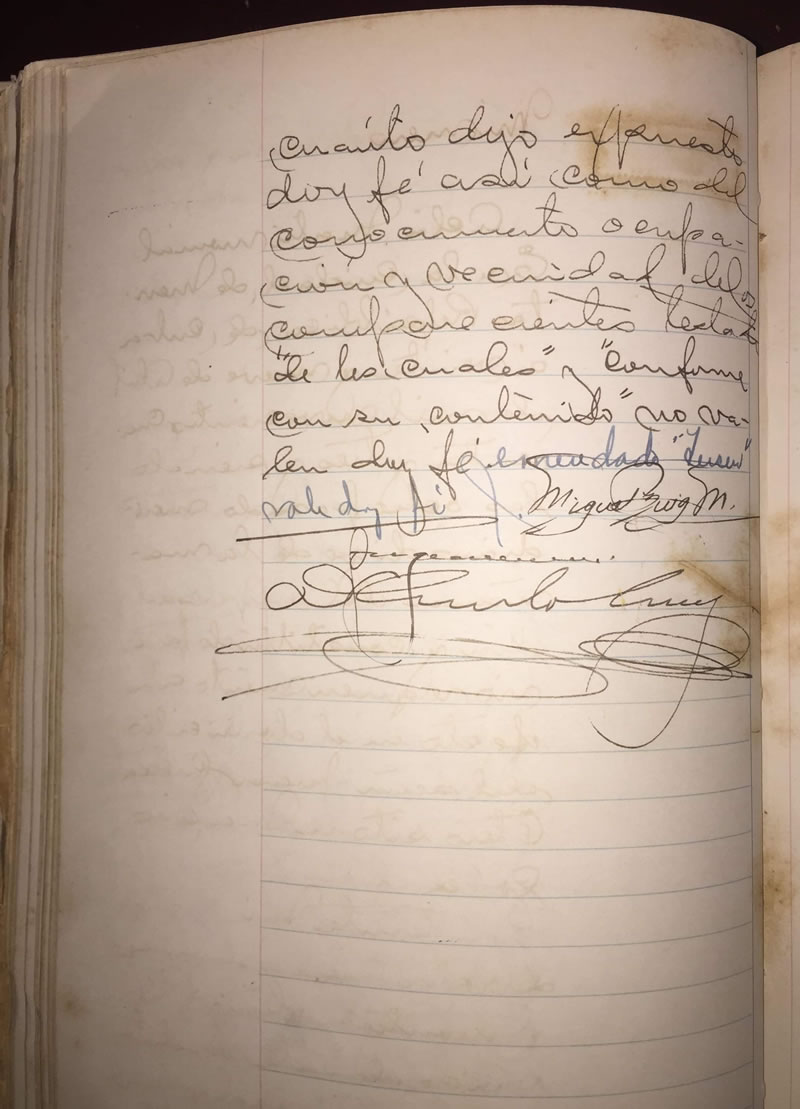 cuánto dejo expuesto
doy fé así como del
conocimiento ocupa-
ción y vecindad delos
comparecientes testado
"de los cuales" y "conforme
con su contenido" no va-
len doy fé emendado
vale doy fé Miguel Puig M.